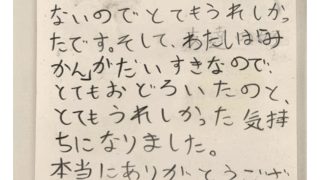 ないのでとてもうれしかっ
たです。そして、わたしは「み
かん」がだいすきなので、
とてもおどろいたのと、
とてもうれしかった気持
ちになりました。
本当にありがとうござ